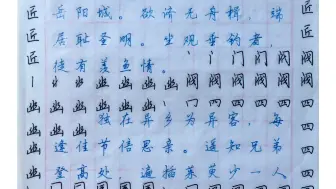 匠 岳阳城。欲济无舟楫，端 匠
匠 居耻圣明。坐观垂钓者， 匠
匠 徒有羡鱼情。 门 阀 匠
幽 幽 幽 幽 幽 幽 阀 阀 阀 阀
幽 幽 幽 四 四 四
幽 独在异乡为异客，每 四
幽 逢佳节倍思亲。遥知兄弟 四
幽 登高处，遍插茱萸少一人 四